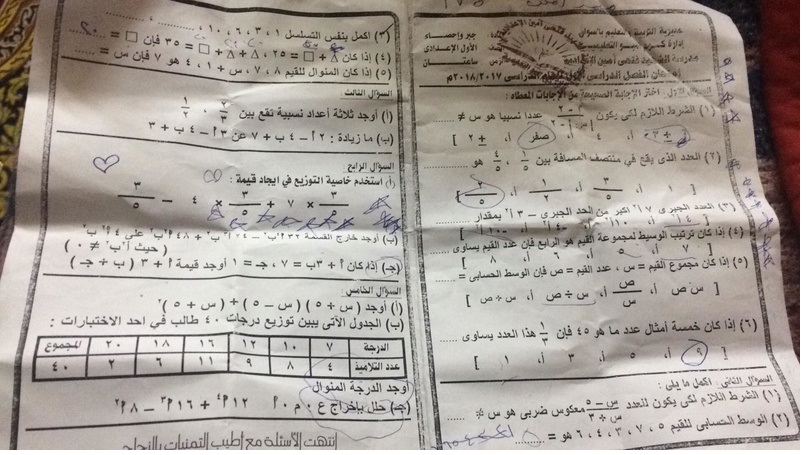 مديرية التربية والتعليم بأسوان
جبر وإحصاء
الأول الإعدادى
ساعتان
امتحان الفصل الدراسى الأول للعام الدراسى ٢٠١٧/٢٠١٨م
السؤال الأول : اختر الإجابة الصحيحة من الإجابات المعطاه :
(١) الشرط اللازم لكى يكون عددا نسبيا هو س ≠
(٢) العدد الذى يقع فى منتصف المسافة بين ١/٥ ، ٤/٥ هو ......
[ ١ أ، ٣/٥ أ، ١/٢ أ، ٢/٥ ]
(٣) العدد الجبرى ٧ أ٢ أكبر من الحد الجبرى – ٣ أ٢ بمقدار
(٤) إذا كان ترتيب الوسيط لمجموعة القيم هو الرابع فإن عدد القيم يساوى
[ ٧ أ، ٥ أ، ٦ أ، ٨ ]
(٥) إذا كان مجموع القيم = س ، عدد القيم = ص فإن الوسط الحسابى =
[ س ص أ، ص/س أ، س ÷ ص أ، س + ص ]
(٦) إذا كان خمسة أمثال عدد ما هو ٤٥ فإن ١/٣ هذا العدد يساوى .....
[ ٩ أ، ٥ أ، ٣ أ، ١ ]
السؤال الثانى : اكمل ما يلى :
(١) الشرط اللازم لكى يكون للعدد معكوس ضربى هو س ≠
(٢) الوسيط الحسابى للقيم ٥ ، ٧ ، ٣ ، ٤ ، ٦ هو =
(٣) اكمل بنفس التسلسل ١ ، ٣ ، ٦ ، ١٠ ، .....
(٤) إذا كان □ + △ + △ = ٢٥ ، △ + □ + □ = ٣٥ فإن □ = ٢٠
(٥) إذا كان المنوال للقيم ٨ ، ٧ ، س + ١ ، ٤ هو ٧ فإن س = ......
السؤال الثالث :
(أ) أوجد ثلاثة أعداد نسبية تقع بين ٢/٣ ، ١/٢
(ب) ما زيادة : ٢ أ – ٤ ب + ٧ عن ٣ أ – ٤ ب + ٣
السؤال الرابع :
(أ) استخدم خاصية التوزيع فى ايجاد قيمة :
(حيث أ٢ ب٢ ≠ ٠ )
(جـ) إذا كان أ + ٣ب = ٧ ، جـ = ١ أوجد قيمة أ + ٣ ( ب + جـ )
السؤال الخامس :
(أ) أوجد ( س + ٥ ) ( س – ٥ ) + ( س + ٥ )٢
(ب) الجدول الآتى يبين توزيع درجات ٤٠ طالب فى احد الاختبارات :
الدرجة ٧ ١٠ ١٢ ١٦ ١٨ ٢٠ المجموع
عدد التلاميذ ٤ ٨ ٩ ١١ ٦ ٢ ٤٠
أوجد الدرجة المنوال
(جـ) حلل بإخراج ع ٠ م ٠ أ ١٢ أ٤ + ١٦ أ٣ – ٨ أ٢
انتهت الأسئلة مع أطيب التمنيات بالنجاح